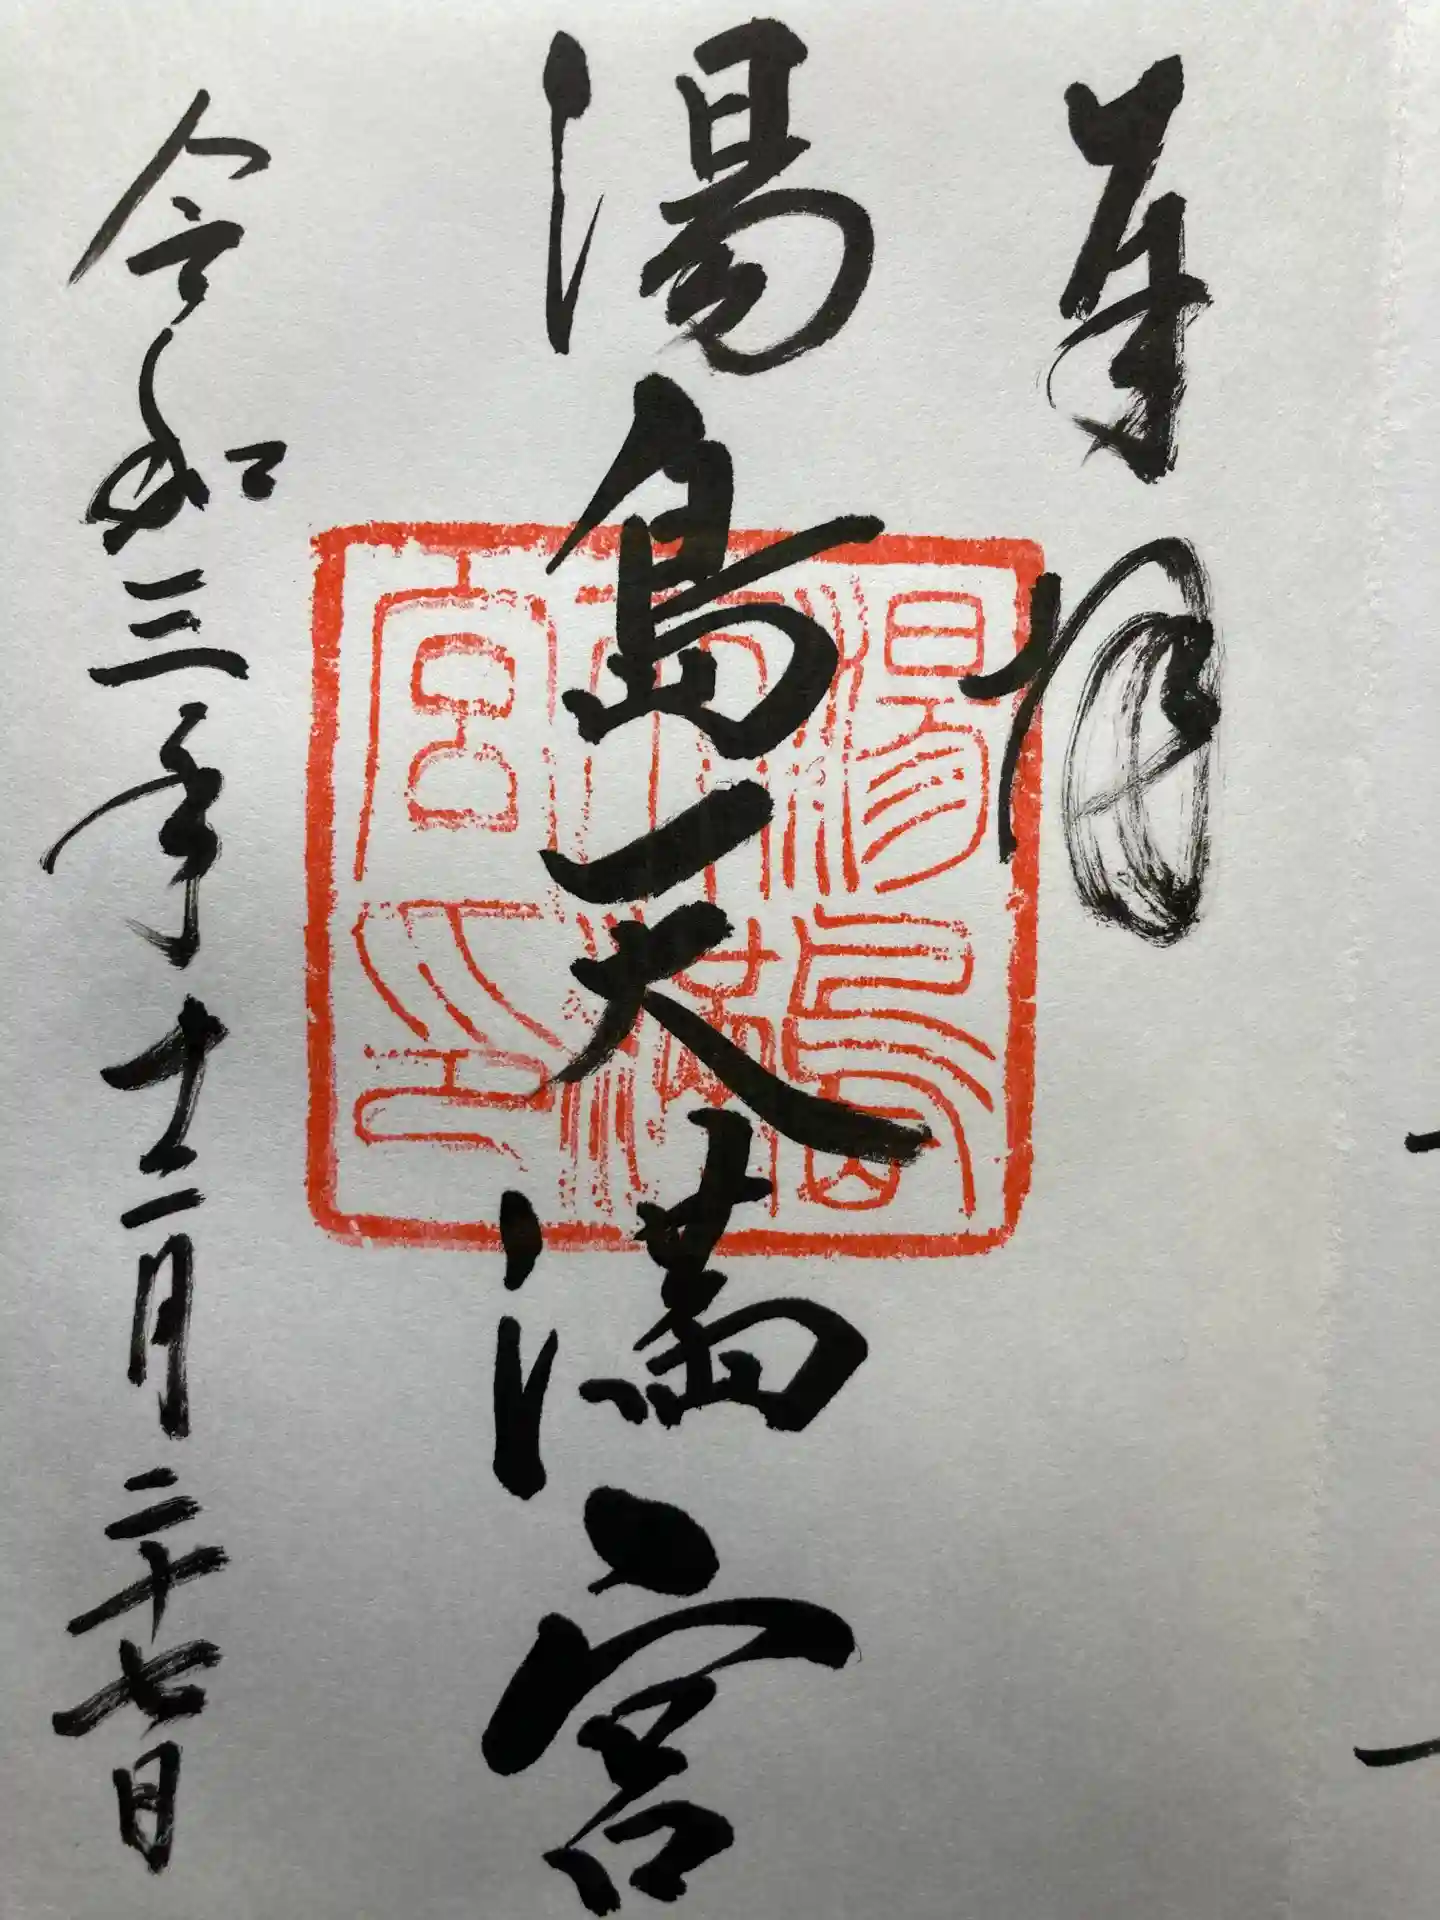 奉拝
湯島天満宮
令和三年十二月二十七日
湯島
天満
宮印